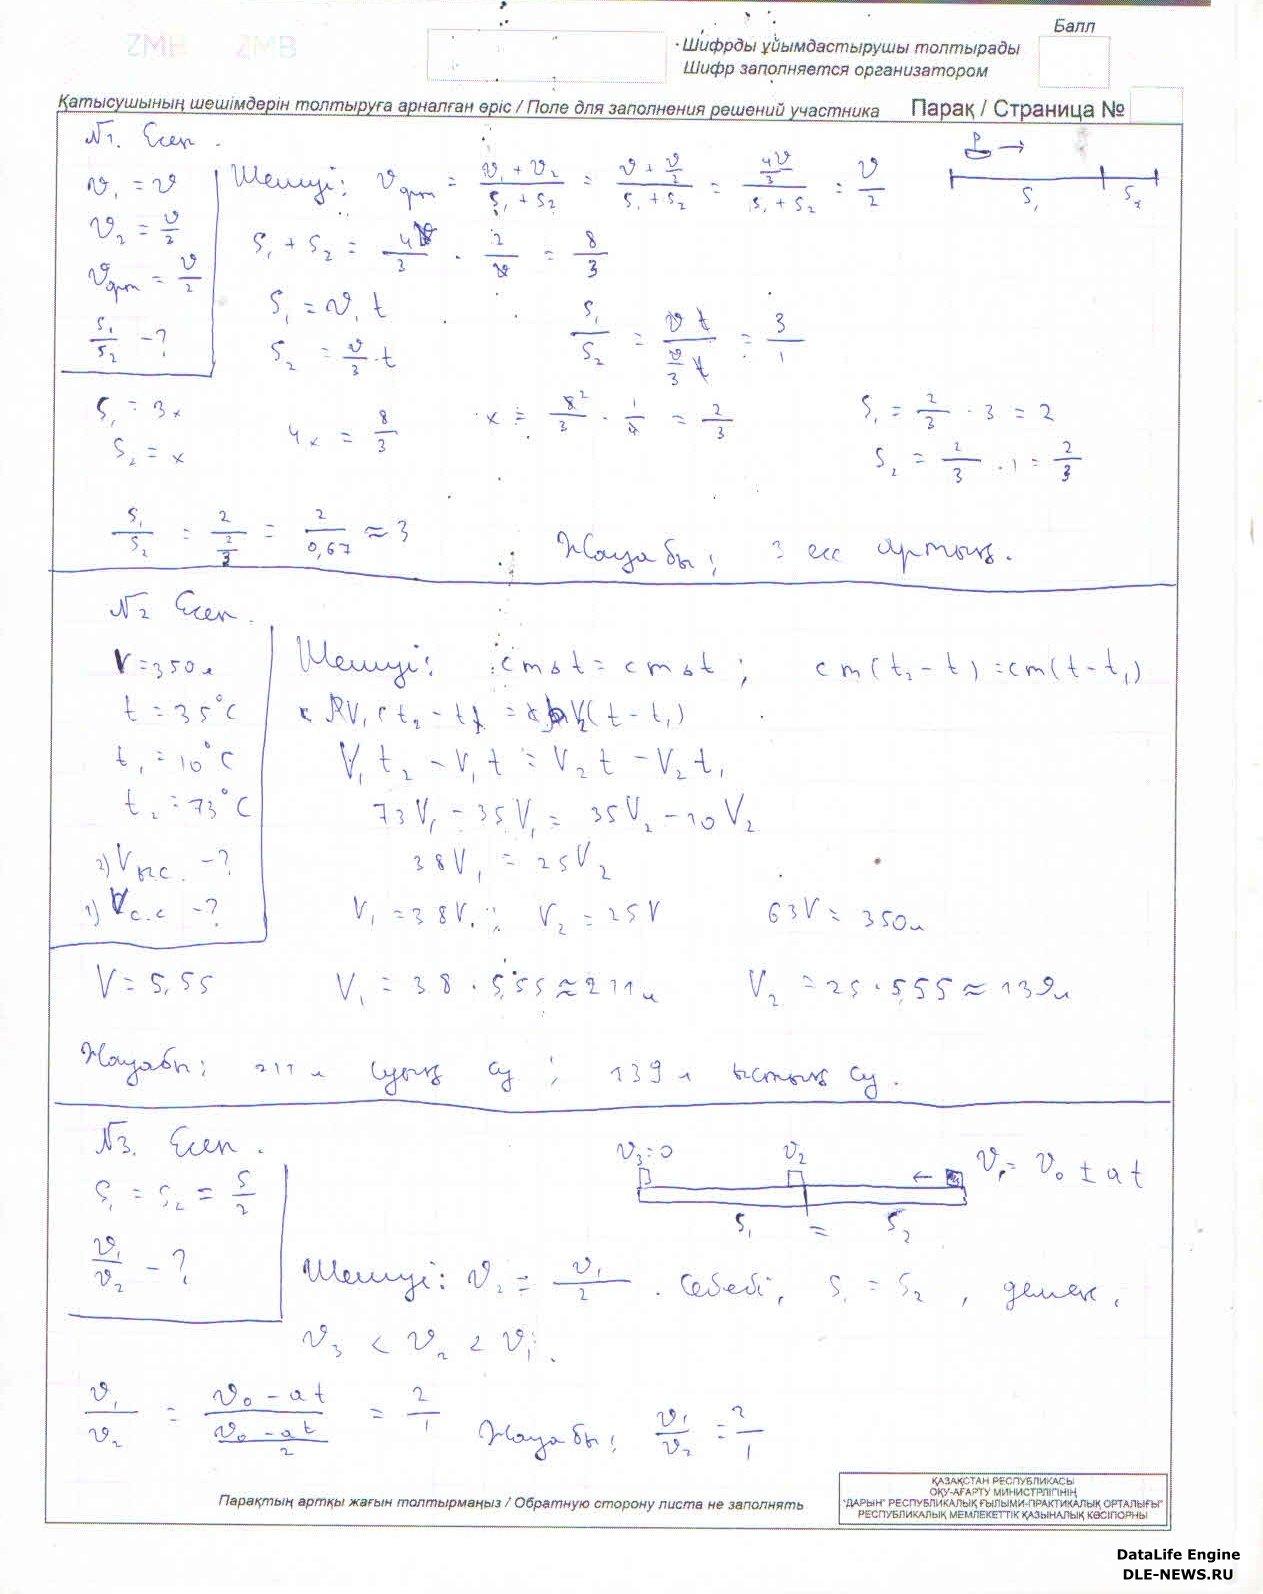 ZMH ZMB
Балл
Шифрды ұйымдастырушы толтырады
Шифр заполняется организатором
Қатысушының шешімдерін толтыруға арналған өріс / Поле для заполнения решений участника Парақ / Страница №
№1. Есеп.
v₁ = v
v₂ = v/2
vорт = v/2
S₁/S₂ - ?
Шешуі: vорт = (v₁ + v₂)/(S₁ + S₂) = (v + v/2)/(S₁ + S₂) = (4v/3)/(S₁ + S₂) = v/2
S₁ S₂
S₁ + S₂ = 4v/3 · 2/v = 8/3
S₁ = v₁ t
S₂ = v/3 · t
S₁/S₂ = vt/(v/3 t) = 3/1
S₁ = 3x
S₂ = x
4x = 8/3
x = 8²/3 · 1/4 = 2/3
S₁ = 2/3 · 3 = 2
S₂ = 2/3 · 1 = 2/3
S₁/S₂ = 2/(2/3) = 2/0,67 ≈ 3
Жауабы: 3 есе артық.
№2 Есеп.
V = 350л
t = 35°C
t₁ = 10°C
t₂ = 73°C
2) Vыс. - ?
1) Vс.с - ?
Шешуі: cmΔt = cmΔt ; cm(t₂ - t) = cm(t - t₁)
V₁t₂ - V₁t = V₂t - V₂t₁
73V₁ - 35V₁ = 35V₂ - 10V₂
38V₁ = 25V₂
V₁ = 38V. ; V₂ = 25V 63V = 350л
V = 5,55 V₁ = 38 · 5,55 ≈ 211л V₂ = 25 · 5,55 ≈ 139л
Жауабы: 211 л суық су ; 139 л ыстық су.
№3. Есеп.
S₁ = S₂ = S/2
v₁/v₂ - ?
v₃=0 v₂ v₁ = v₀ ± at
S₁ = S₂
Шешуі: v₂ = v₁/2 . Себебі, S₁ = S₂ , демек,
v₃ < v₂ < v₁.
v₁/v₂ = (v₀ - at)/((v₀ - at)/2) = 2/1 Жауабы: v₁/v₂ = 2/1
Парақтың артқы жағын толтырмаңыз / Обратную сторону листа не заполнять
ҚАЗАҚСТАН РЕСПУБЛИКАСЫ
ОҚУ-АҒАРТУ МИНИСТРЛІГІНІҢ
"ДАРЫН" РЕСПУБЛИКАЛЫҚ ҒЫЛЫМИ-ПРАКТИКАЛЫҚ ОРТАЛЫҒЫ"
РЕСПУБЛИКАЛЫҚ МЕМЛЕКЕТТІК ҚАЗЫНАЛЫҚ КӘСІПОРНЫ
DataLife Engine
DLE-NEWS.RU